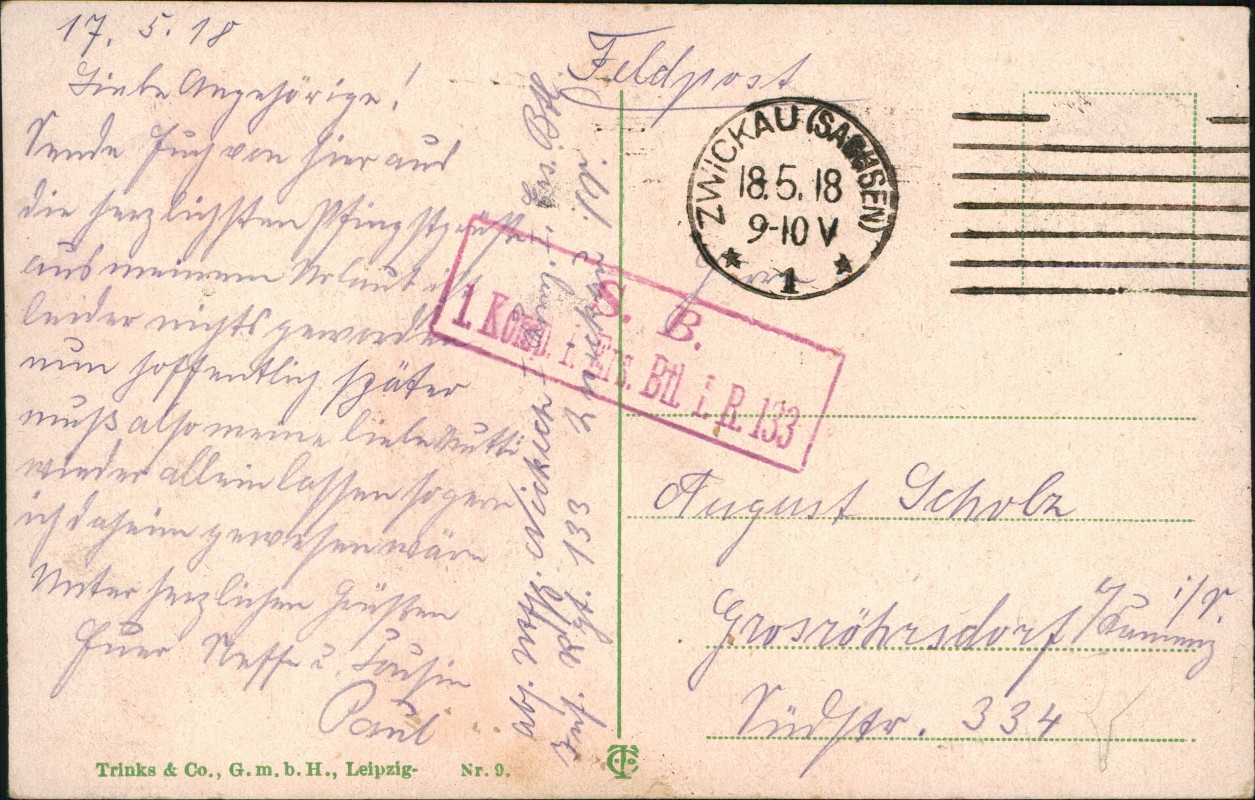 17. 5. 18
Liebe Angehörige!
Sende Euch von hier aus
die herzlichsten Pfingstgrüße
aus meinem Urlaub ist
leider nichts geworden
nun hoffentlich später
muß also meine liebe Mutti
wieder allein lassen so gern
ich daheim gewesen wäre
Unter herzlichen Grüßen
Euer Neffe u. Cousin
Paul
Abs. Ers. Btl.
Inf. Rgt. 133 Zwickau i/S.
Feldpost
ZWICKAU (SACHSEN)
18.5.18
9-10 V
* 1 *
S. B.
1. Komp. i. Ers. Btl. I. R. 133
Herrn
August Scholz
Grosröhrsdorf i/S.
/Kamenz
Südstr. 334
Trinks & Co., G. m. b. H., Leipzig- Nr. 9.